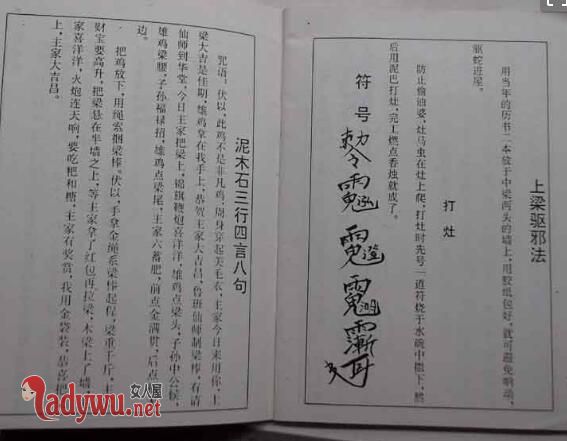 上梁驱邪法
用当年的历书二本放于中梁两头的墙上,用胶纸包好,就可避免响动,
驱蛇进屋。
打灶
防止偷油婆,灶马虫在灶上爬,打灶时先号一道符烧于水碗中撒下,然
后用泥巴打灶,完工燃点香烛就成了。
符号
敕令
泥木石三行四言八句
咒语:伏以,此鸡不是非凡鸡,周身穿起美毛衣,主家今日来用你,上
梁大吉是佳期,雄鸡拿在我手上,恭贺主家大吉昌,鲁班仙师制梁棒,有请
仙师到华堂,今日主家把梁上,锦旗鞭炮喜洋洋,雄鸡点梁头,子孙中公侯,
雄鸡梁腰,子孙福禄招,雄鸡点梁尾,主家六畜肥,前点金满贯,后点
边。
把鸡放下,用绳索捆梁棒。伏以,手拿金绳系梁棒起程,梁重千斤,主
财宝要高升,把梁悬在半墙之上,等主家拿了红包再拉梁,木梁上了墙,
家喜洋洋,火炮连天响,要吃粑和糖,主家有奖赏,我用金袋装,恭喜把
上,主家大吉昌。
女人屋
Ladywu.net